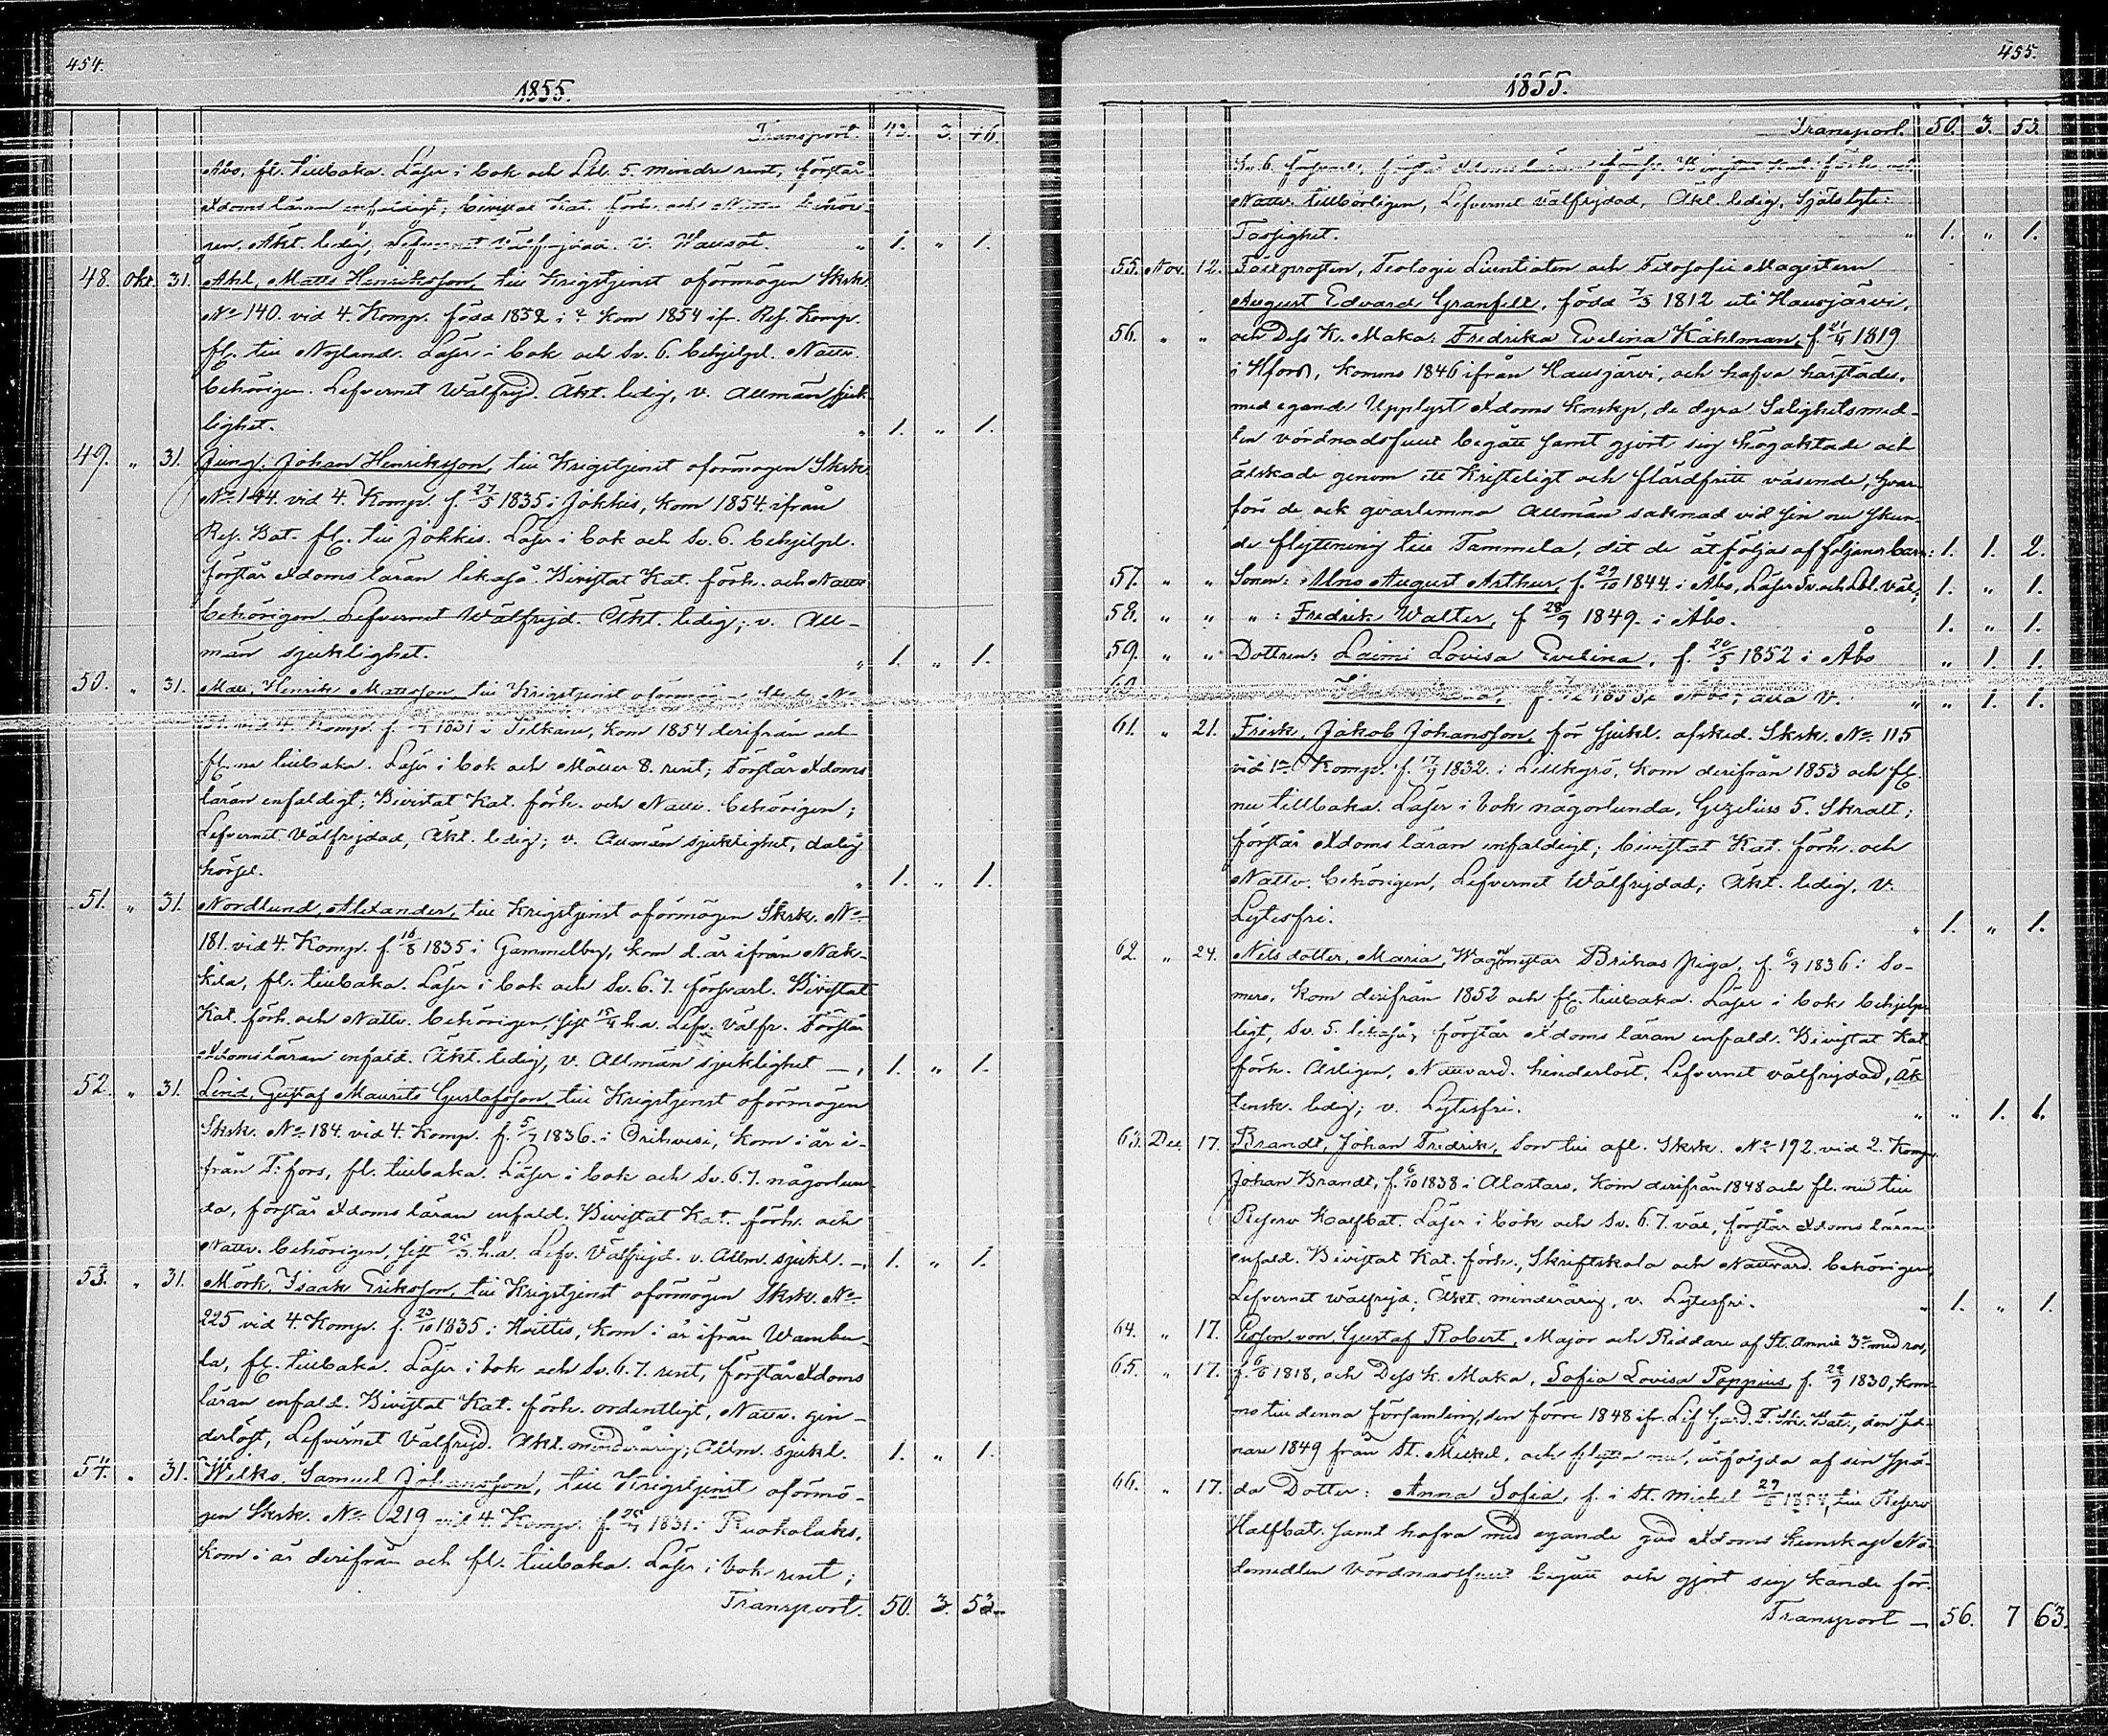 454.
1855.
Transport. 43. 3. 46.
Åbo, fl. tillbaka. Läser i bok och Lbl. 5. mindre rent, förstår
Xdoms läran enfaldigt; bivistat Kat. förh. och Nattv. behöri-
gen, Äkt. ledig, Lefvernet Välfrejdad. V. „ 1. „ 1.
48. Okt. 31. Ahl, Matts Henriksson, till Krigstjenst oförmögen Skrk.
No 140. vid 4. Komp. född 1832 i ? kom 1854 ifr. Res. Komp.
fl. till Nyland. Läser i bok och Sv. 6. behjelpl. Nattv.
behörigen. Lefvernet Wälfrejd. Äkt. ledig, v. Allmän sjuk-
lighet. „ 1. „ 1.
49. „ 31. Jung, Johan Henriksson, till Krigstjenst oförmögen Skrk.
No 144. vid 4. Komp. f. 27/5 1835 i Jokkis, kom 1854. ifrån
Res. Bat. fl. till Jokkis. Läser i bok och Sv. 6. behjelpl.
förstår Xdoms läran likaså. Bivistat Kat. förh. och Nattv.
behörigen. Lefvernet Wälfrejd. Äkt. ledig; v. All-
män sjuklighet. „ 1. „ 1.
50. „ 31. Matts, Henrik Mattsson till Krigstjenst oförmögen Skrk. No
vid 4. Komp. f. 1831 i kom 1854 derifrån och
fl. nu tillbaka. Läser i bok och Möller 8. rent; Förstår Xdoms
läran enfaldigt; Bivistat Kat. förh. och Nattv. behörigen;
Lefvernet Välfrejdad, Äkt. ledig; v. Allmän sjuklighet, dålig
hörsel. „ 1. „ 1.
51. „ 31. Nordlund, Alexander, till Krigstjenst oförmögen Skrk. No
181. vid 4. Komp. f. 16/8 1835 i Gammelby, kom d. år ifrån Nak-
kila, fl. tillbaka. Läser i bok och Sv. 6. 7. försvarl. Bivistat
Kat. förh. och Nattv. behörigen, sist 15/4 h.a. Lefv. Välfr. Förstår
Xdomsläran enfald. Äkt. ledig, v. Allmän sjuklighet —, 1. „ 1.
52. „ 31. Lind, Gustaf Maurits Gustafsson, till Krigstjenst oförmögen
Skrk. No 184. vid 4. Komp. f. 5/7 1836. i Orihvesi, kom i år i-
från T:fors, fl. tillbaka. Läser i bok och Sv. 6. 7. någorlun-
da, förstår Xdoms läran enfald. Bivistat Kat. förh. och
Nattv. behörigen, sist 25/5 h.a. Lefv. Välfrejd. v. Allm. sjukl. —, 1. „ 1.
53. „ 31. Mörk, Isaak Eriksson, till Krigstjenst oförmögen Skrk. No
225 vid 4. Komp. f. 23/10 1835 i Hvittis, kom i år ifrån Wambu-
la, fl. tillbaka. Läser i bok och Sv. 6. 7. rent, förstår Xdoms
läran enfald. Bivistat Kat. förh. ordentligt, Nattv. hin-
derlöst, Lefvernet Välfrejd. Äkt. minderårig, Allm. sjukl. 1. „ 1.
54. „ 31. Wilks, Samuel Johansson, till Krigstjenst oförmö-
gen Skrk. No 219 vid 4. Komp. f. 25/7 1831. i Ruokolaks,
kom i år derifrån och fl. tillbaka. Läser i bok rent;
Transport. 50. 3. 53.
455.
1855.
Transport. 50. 3. 53.
Sv. 6. försvarl. förstår Xdomsläran Bivistat Kat. förh. och
Nattv. tillbörligen, Lefvernet välfrejdad, Äkt. ledig, Själslyte:
Tossighet. „ 1. „ 1.
55. Nov. 12. Fältprosten, Teologie Licentiaten och Filosofie Magistern
August Edvard Granfelt, född 7/3 1812 uti Hausjärvi,
56. „ „ och Dess K. Maka, Fredrika Evelina Kåhlman, f. 21/4 1819
i Hfors, komne 1846 ifrån Hausjärvi, och hafva härstädes,
med egande Upplyst Xdoms knskp, de dyra Salighetsmed-
len vördnadsfullt begått samt gjort sig högaktade och
älskade genom ett Kristeligt och flärdfritt väsende, hvar-
före de ock qvarlemna Allmän saknad vid sin nu sken-
de flyttning till Tammela, dit de åtföljas af följande barn: 1. 1. 2.
57. „ „ Sonen: Uno August Arthur, f. 29/10 1844. i Åbo, Läser Sv. och Lbl. väl, 1. „ 1.
58. „ „ „ : Fredrik Walter, f 28/9 1849. i Åbo. 1. „ 1.
59. „ „ Dottren: Laimi Lovisa Evelina, f. 20/5 1852 i Åbo „ 1. 1.
60. f. i Åbo; alla V. „ „ 1. 1.
61. „ 21. Frisk, Jakob Johansson, för sjukl. afsked. Skrk. No. 115
vid 1a Komp. f. 17/9 1832. i Lillkyrö, kom derifrån 1853 och fl.
nu tillbaka. Läser i bok någorlunda, Gezelius 5. Skralt;
förstår Xdoms läran enfaldigt; bivistat Kat. förh. och
Nattv. behörigen, Lefvernet Wälfrejdad; Äkt. ledig, V.
Lytesfri. „ 1. „ 1.
62. „ 24. Nilsdotter, Maria, Wagnmästar Brikas piga, f. 6/9 1836 i So-
mero, kom derifrån 1852 och fl. tillbaka. Läser i bok behjelp-
ligt, Sv. 5. likaså, förstår Xdoms läran enfald. Bivistat Kat.
förh. Årligen, Nattvard. hinderlöst, Lefvernet välfrejdad, Äk
tensk. ledig; v. Lytesfri. „ „ 1. 1.
63. Dec. 17. Brandt, Johan Fredrik, Son till afl. Skrk. No 192. vid 2. Komp.
Johan Brandt, f. 6/10 1838 i Alastaro, kom derifrån 1848 och fl. nu till
Reserv Halfbat. Läser i bok och Sv. 6. 7. väl, förstår Xdoms läran
enfald. Bivistat Kat. förh., Skriftskola och Nattvard. behörigen,
Lefvernet wälfrejd; Äkt. minderårig, v. Lytesfri. „ 1. „ 1.
64. „ 17. von, Gustaf Robert, Major och Riddare af St. Annæ 3e med ros,
65. „ 17. f. 6/6 1818, och Dess K. Maka, Sofia Lovisa Poppius, f. 22/9 1830, kom-
ne till denna församling, den förre 1848 ifr. Lif Gard. F. Skr. Bat., den sed-
nare 1849 från St. Mickel, och flytta nu, åtföljda af sin spä-
66. „ 17. da Dotter: Anna Sofia, f. i St. Mickel 1854, till Reserv
Halfbat. samt hafva med egande god Xdoms kunskap Nå-
demedlen vördnadsfullt begått och gjort sig kände för
Transport — 56. 7 63.